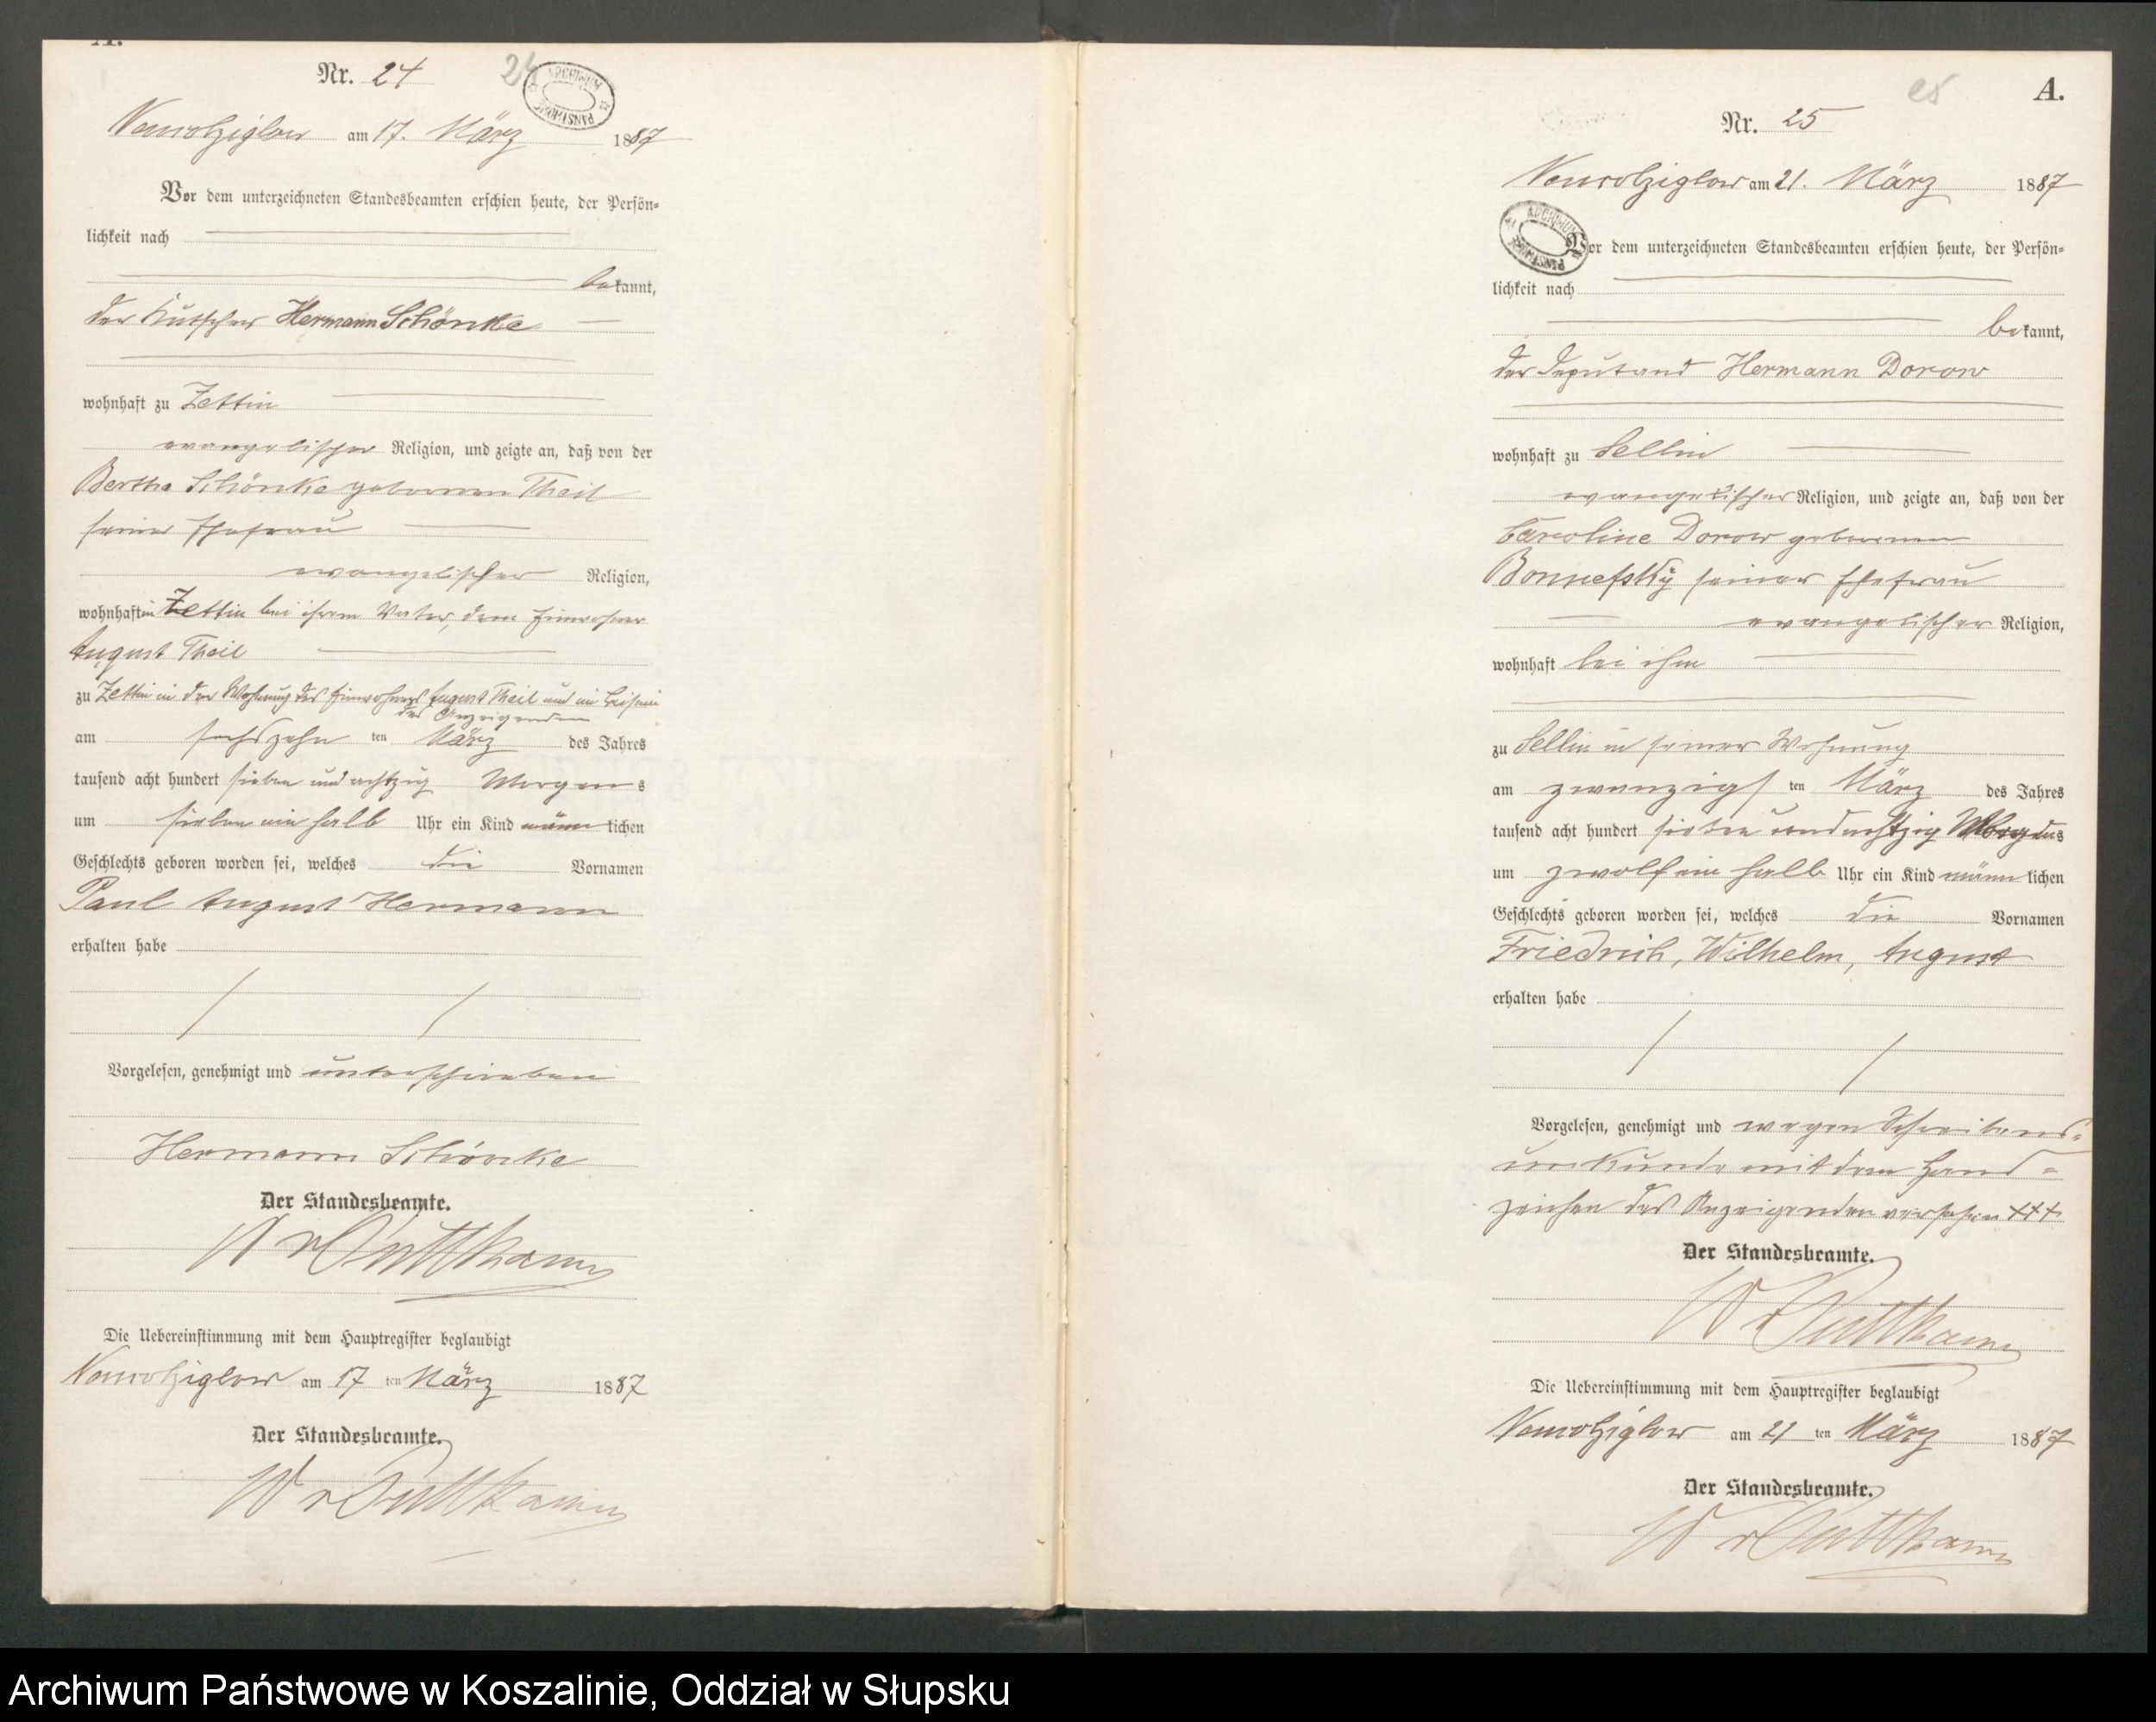 A.
Nr. 24
24
ARCHIWUM PAŃSTWOWE
am 17. März 1887
Vor dem unterzeichneten Standesbeamten erschien heute, der Persön=
lichkeit nach
bekannt,
der Kutscher Hermann Schönke
wohnhaft zu Zettin
evangelischer Religion, und zeigte an, daß von der
Bertha Schönke geborenen Theil
seiner Ehefrau
evangelischer Religion,
wohnhaft in Zettin bei ihrem Vater, dem Einwohner
August Theil
zu Zettin in der Wohnung des Einwohners August Theil und in Beisein
des Anzeigenden
am sechszehn ten März des Jahres
tausend acht hundert sieben und achtzig Morgens
um sieben ein halb Uhr ein Kind männlichen
Geschlechts geboren worden sei, welches die Vornamen
Paul August Hermann
erhalten habe
Vorgelesen, genehmigt und unterschrieben
Hermann Schönke
Der Standesbeamte.
W v Puttkamer
Die Uebereinstimmung mit dem Hauptregister beglaubigt
am 17 ten März 1887
Der Standesbeamte.
W v Puttkamer
25
A.
Nr. 25
am 21. März 1887
ARCHIWUM PAŃSTWOWE
Vor dem unterzeichneten Standesbeamten erschien heute, der Persön=
lichkeit nach
bekannt,
der Deputand Hermann Dorow
wohnhaft zu Sellin
evangelischer Religion, und zeigte an, daß von der
Caroline Dorow geborenen
seiner Ehefrau
evangelischer Religion,
wohnhaft bei ihm
zu Sellin in seiner Wohnung
am zwanzigs ten März des Jahres
tausend acht hundert sieben und achtzig
um zwölf ein halb Uhr ein Kind männlichen
Geschlechts geboren worden sei, welches die Vornamen
Friedrich, Wilhelm, August
erhalten habe
Vorgelesen, genehmigt und wegen Schreibens=
unkunde mit dem Hand=
zeichen des Anzeigenden versehen +++
Der Standesbeamte.
W v Puttkamer
Die Uebereinstimmung mit dem Hauptregister beglaubigt
am 21 ten März 1887
Der Standesbeamte.
W v Puttkamer
Archiwum Państwowe w Koszalinie, Oddział w Słupsku